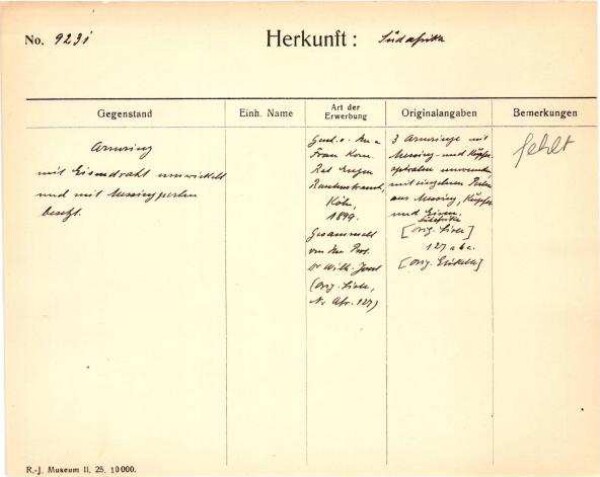 No. 9231
Herkunft: Südafrika
Gegenstand
Einh. Name
Art der
Erwerbung
Originalangaben
Bemerkungen
Armring
mit Eisendraht umwickelt
und mit Messingperlen
besetzt.
Gesch. v. Hrn u
Frau Kom.
Rat Eugen
Rautenstrauch,
Köln,
1899.
Gesammelt
von Hrn Prof.
Dr Wilh. Joest
(orig. Liste,
No Afr. 127)
3 Armringe mit
Messing- und Kupfer-
spiralen umwunden,
mit einzelnen Perlen
aus Messing, Kupfer
und Eisen.
Südafrika
[orig. Liste]
127 a b c.
[orig. Etikette]
fehlt
R.-J. Museum II. 25. 10000.